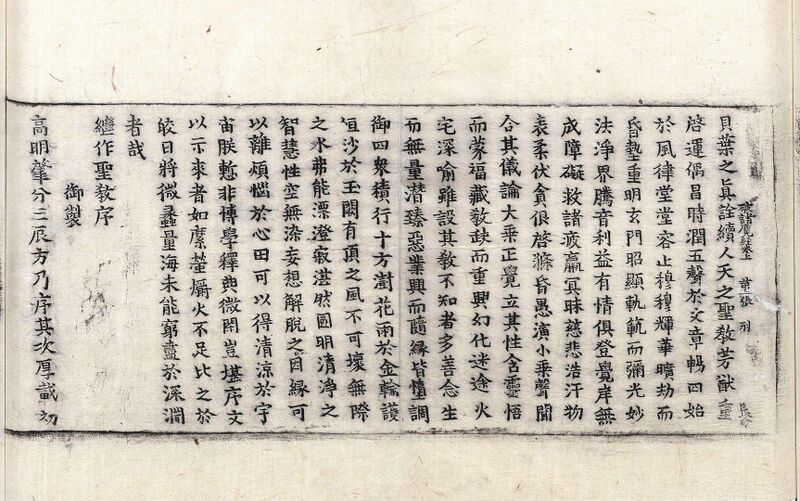 貝葉之眞詮續人天之聖教芳猷重
啓運偶昌時潤五聲於文章暢四始
於風律堂堂容止穆穆輝華曠劫而
昏蟄重明玄門昭顯軌範而彌光妙
法淨界騰音利益有情俱登覺岸無
成障礙救諸疲羸冥昧慈悲浩汗物
表柔伏貪很啓滌昏愚演小乘聲聞
合其儀論大乘正覺立其性含靈悟
而蒙福藏教缺而重興幻化迷途火
宅深喻雖設其教不知者多善念生
而無量潜臻惡業興而隨緣皆墮調
御四衆積行十方澍花雨於金輪護
恒沙於玉闕有頂之風不可壞無際
之水弗能漂澄寂湛然圓明清淨之
智慧性空無染妄想解脫之因緣可
以離煩惱於心田可以得清涼於宇
宙朕慙非博學釋典微閑豈堪序文
以示來者如縻螢爝火不足比之於
皎日將微蠡量海未能窮盡於深淵
者哉
繼作聖教序
御製
高明肇分三辰方乃序其次厚載初